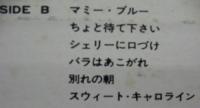 SIDE B マミー・ブルー
ちょと待て下さい
シェリーに口づけ
バラはあこがれ
別れの朝
スウィート・キャロライン